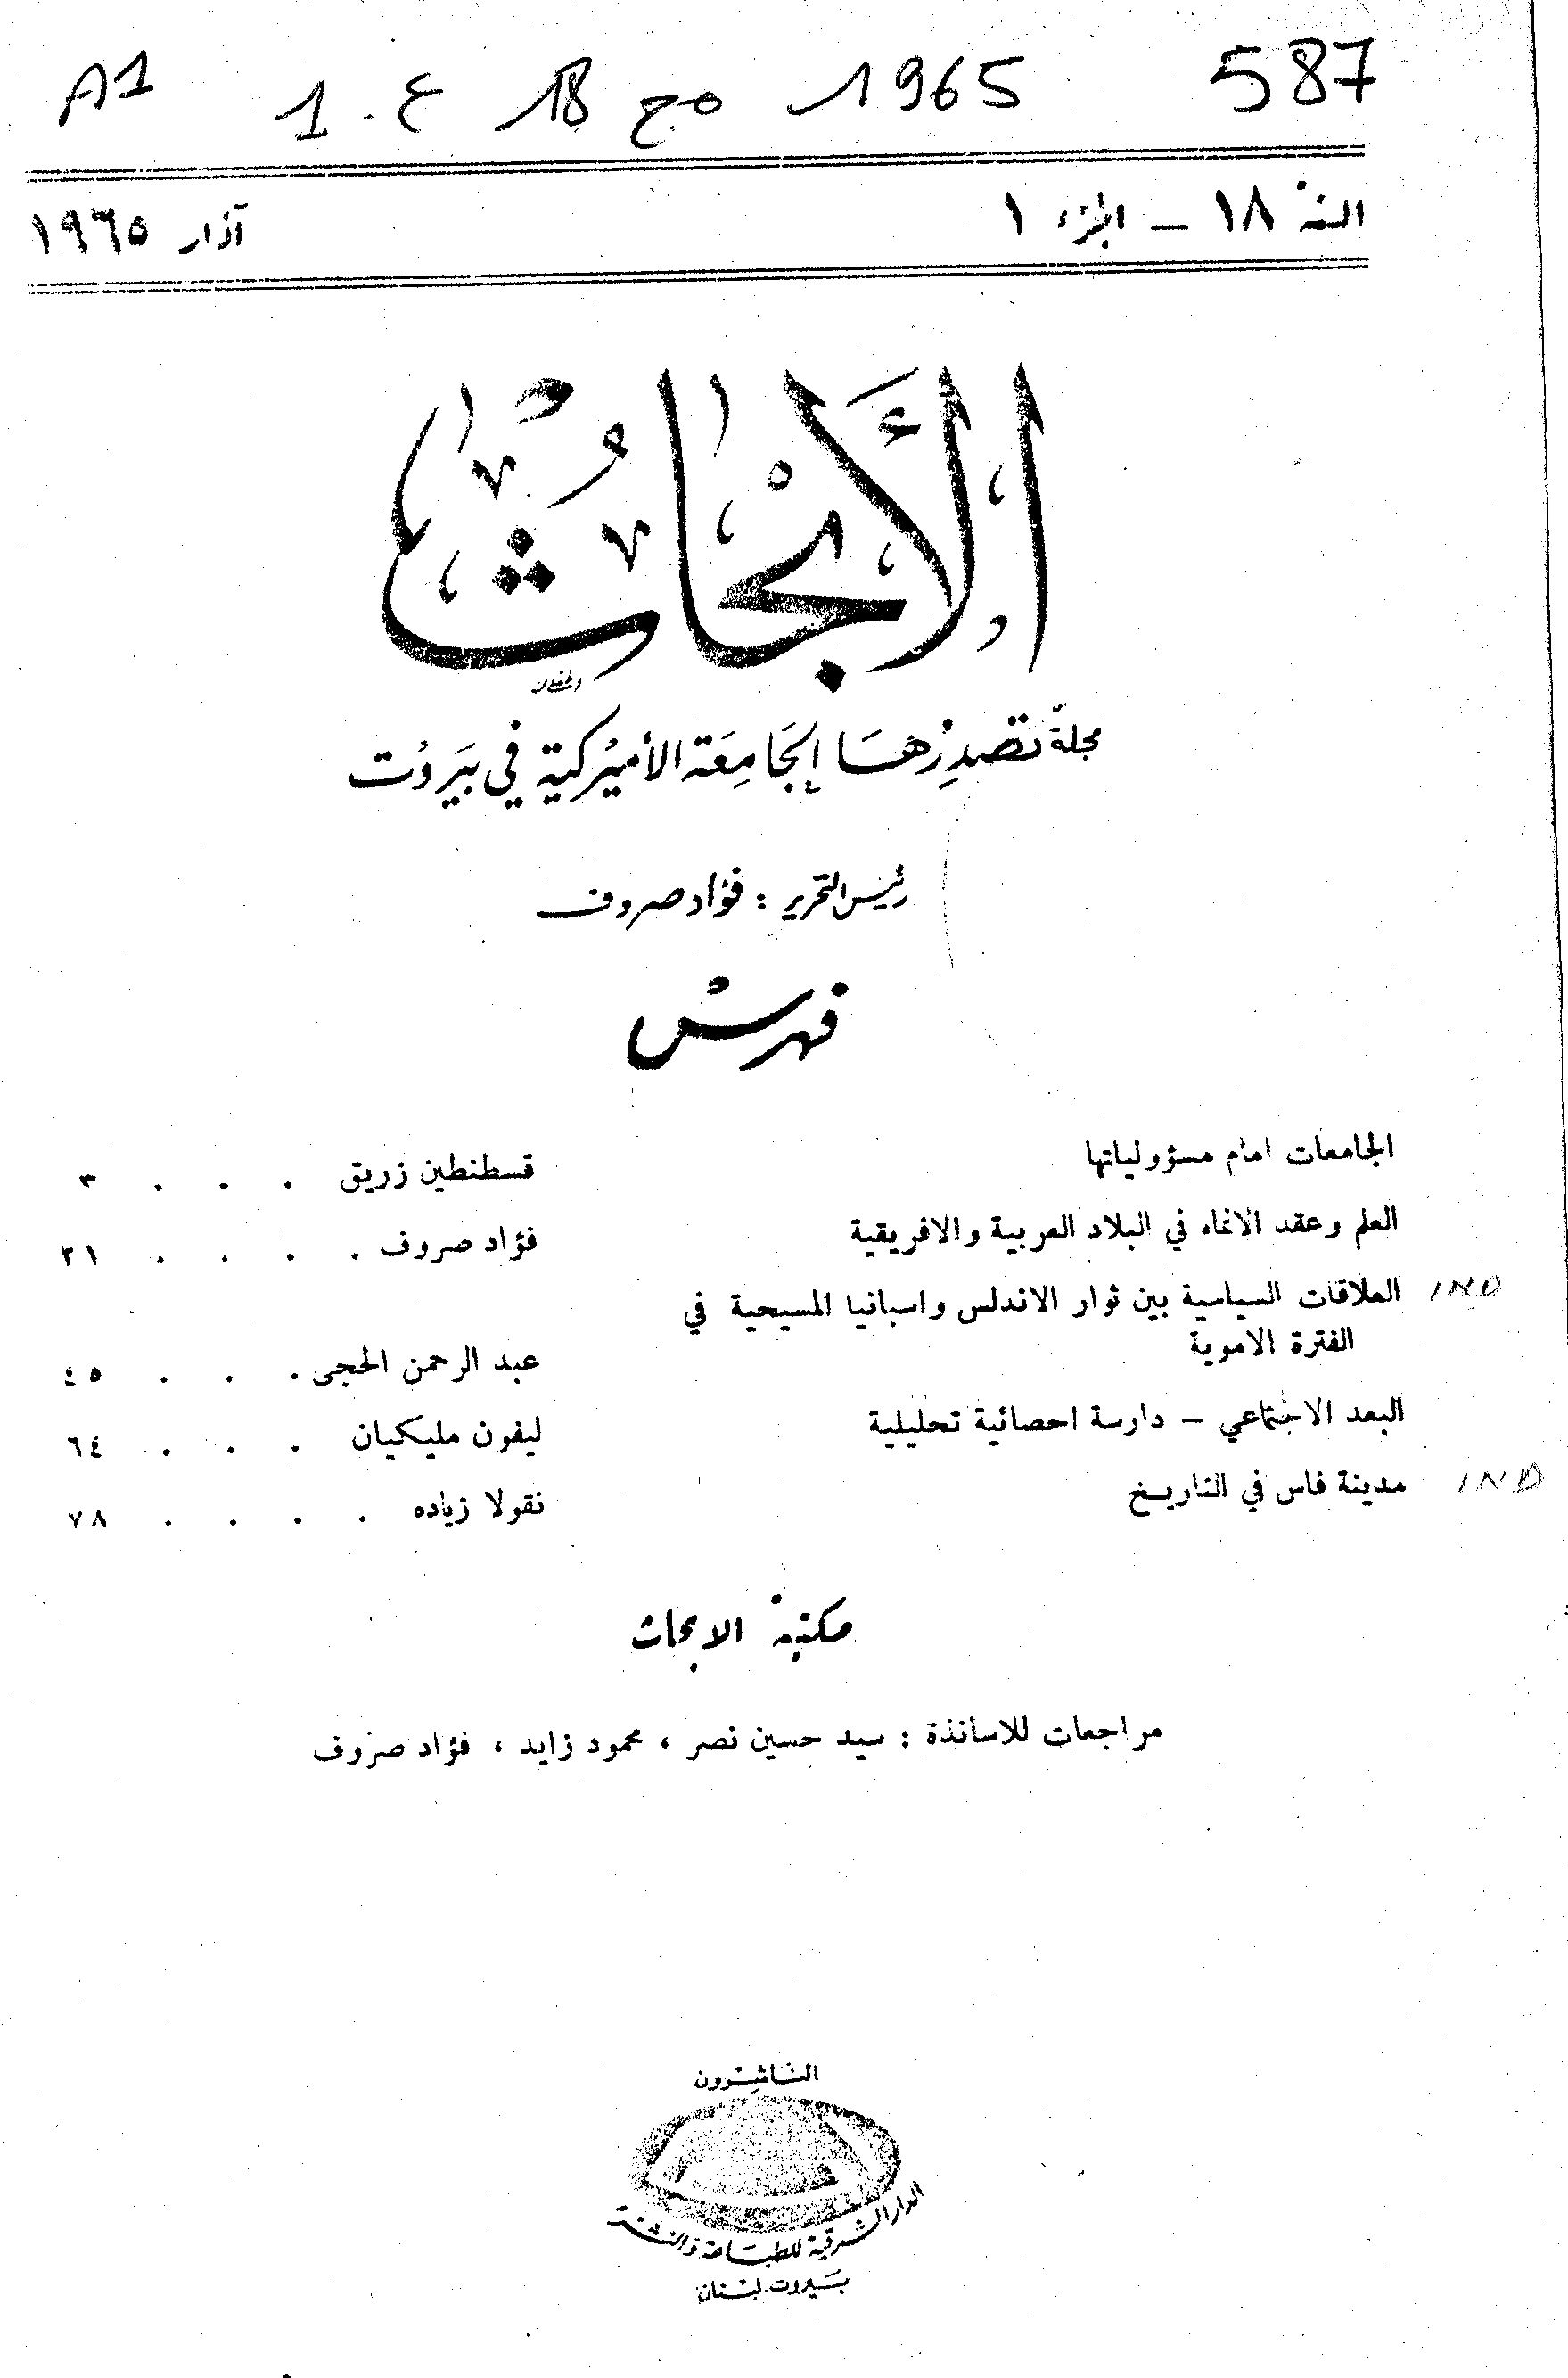 587 1965 مج 18 ع. 1 A1
السنة ١٨ – الجزء ١ آذار ١٩٦٥
الأبحاث
مجلة تصدرها الجامعة الأميركية في بيروت
رئيس التحرير : فؤاد صروف
فهرس
الجامعات امام مسؤولياتها قسطنطين زريق . . . ٣
العلم وعقد الانماء في البلاد العربية والافريقية فؤاد صروف . . . . ٢١
IND العلاقات السياسية بين ثوار الاندلس واسبانيا المسيحية في
الفترة الاموية عبد الرحمن الحجي . . . ٤٥
البعد الاجتماعي – دارسة احصائية تحليلية ليفون مليكيان . . . ٦٤
IND مدينة فاس في التاريخ نقولا زياده . . . . ٧٨
مكتبة الابحاث
مراجعات للاساتذة : سيد حسين نصر ، محمود زايد ، فؤاد صروف
الناشرون
الدار الشرقية للطباعة والنشر
بيروت. لبنان